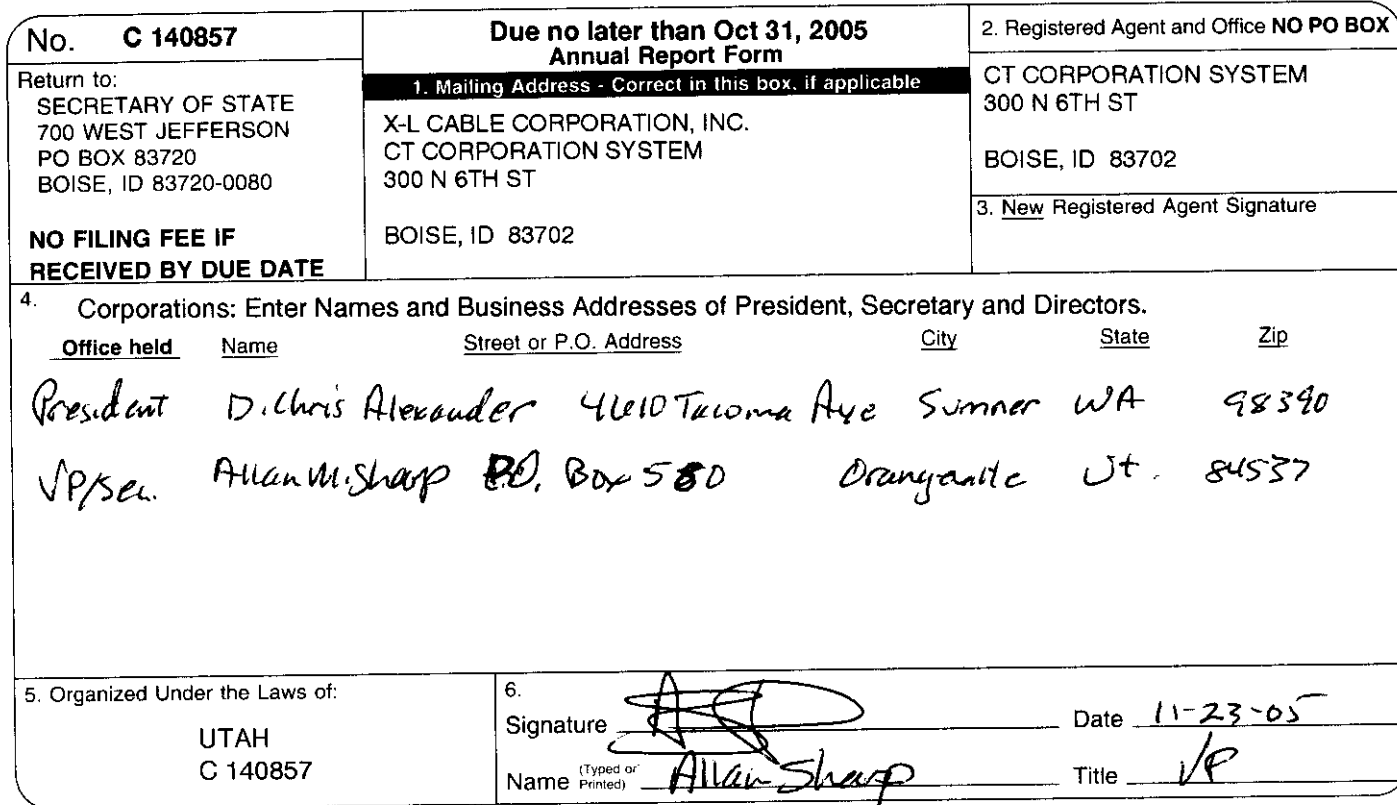 No. C 140857
Return to:
SECRETARY OF STATE
700 WEST JEFFERSON
PO BOX 83720
BOISE, ID 83720-0080
NO FILING FEE IF
RECEIVED BY DUE DATE
Due no later than Oct 31, 2005
Annual Report Form
1. Mailing Address - Correct in this box, if applicable
X-L CABLE CORPORATION, INC.
CT CORPORATION SYSTEM
300 N 6TH ST
BOISE, ID 83702
2. Registered Agent and Office NO PO BOX
CT CORPORATION SYSTEM
300 N 6TH ST
BOISE, ID 83702
3. New Registered Agent Signature
4. Corporations: Enter Names and Business Addresses of President, Secretary and Directors.
Office held Name Street or P.O. Address City State Zip
President D. Chris Alexander 4610 Tacoma Ave Sumner WA 98390
VP/Sec. Allan M. Sharp P.O. Box 580 Orangeville Ut. 84537
5. Organized Under the Laws of:
UTAH
C 140857
6.
Signature Date 11-23-05
Name (Typed or Printed) Allan Sharp Title VP